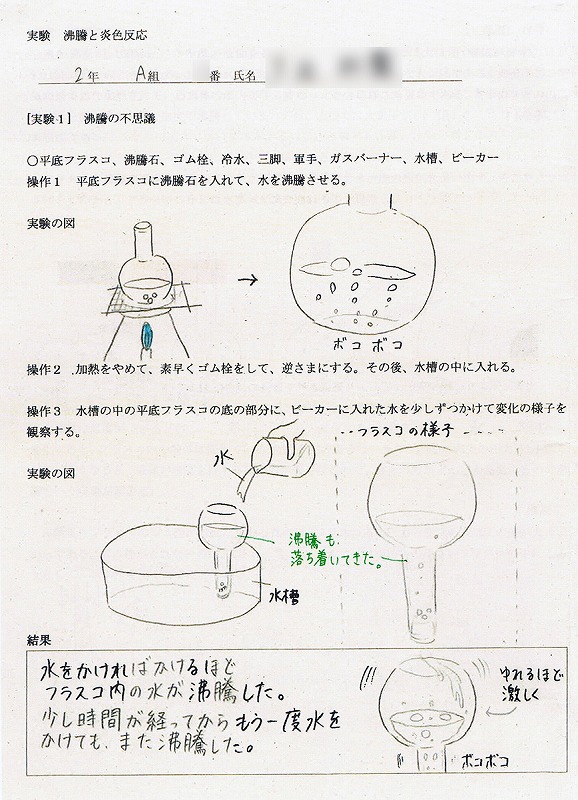 実験　沸騰と炎色反応
2年　A組　番　氏名
[実験1]　沸騰の不思議
○平底フラスコ、沸騰石、ゴム栓、冷水、三脚、軍手、ガスバーナー、水槽、ビーカー
操作1　平底フラスコに沸騰石を入れて、水を沸騰させる。
実験の図
→
ボコ ボコ
操作2　加熱をやめて、素早くゴム栓をして、逆さまにする。その後、水槽の中に入れる。
操作3　水槽の中の平底フラスコの底の部分に、ビーカーに入れた水を少しずつかけて変化の様子を
観察する。
フラスコの様子
水
実験の図
沸騰も
落ち着いてきた。
水槽
結果
水をかければかけるほど
フラスコ内の水が沸騰した。
少し時間が経ってからもう一度水を
かけても、また沸騰した。
ゆれるほど
激しく
ボコボコ